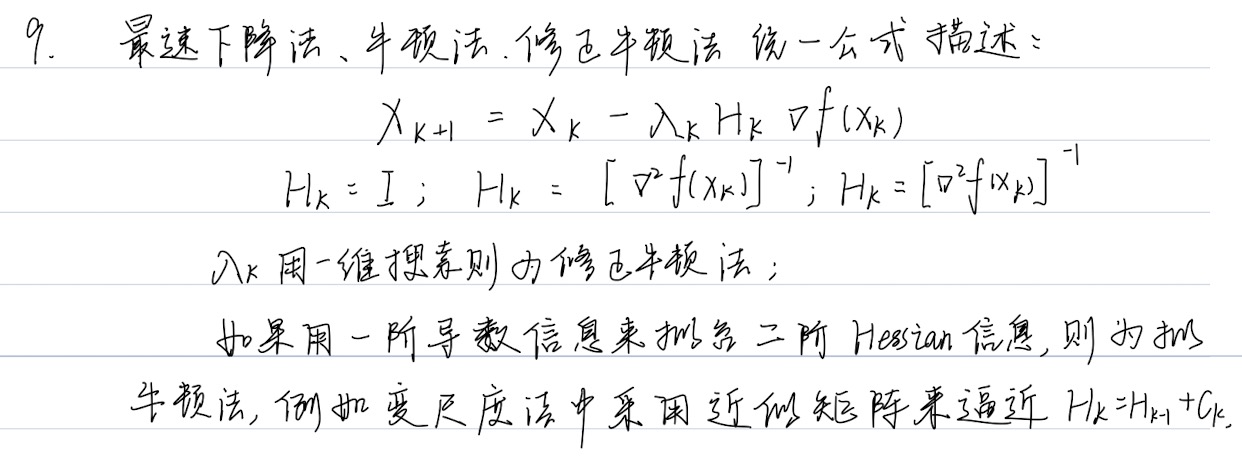 9. 最速下降法、牛顿法、修正牛顿法 统一公式描述:
X_{K+1} = X_K - λ_K H_K ∇f(X_K)
H_K = I ; H_K = [∇²f(X_K)]^{-1} ; H_K = [∇²f(X_K)]^{-1}
λ_K 用一维搜索则为修正牛顿法;
如果用一阶导数信息来拟合二阶 Hessian 信息, 则为拟
牛顿法, 例如变尺度法中采用近似矩阵来逼近 H_K = H_{K-1} + C_K.